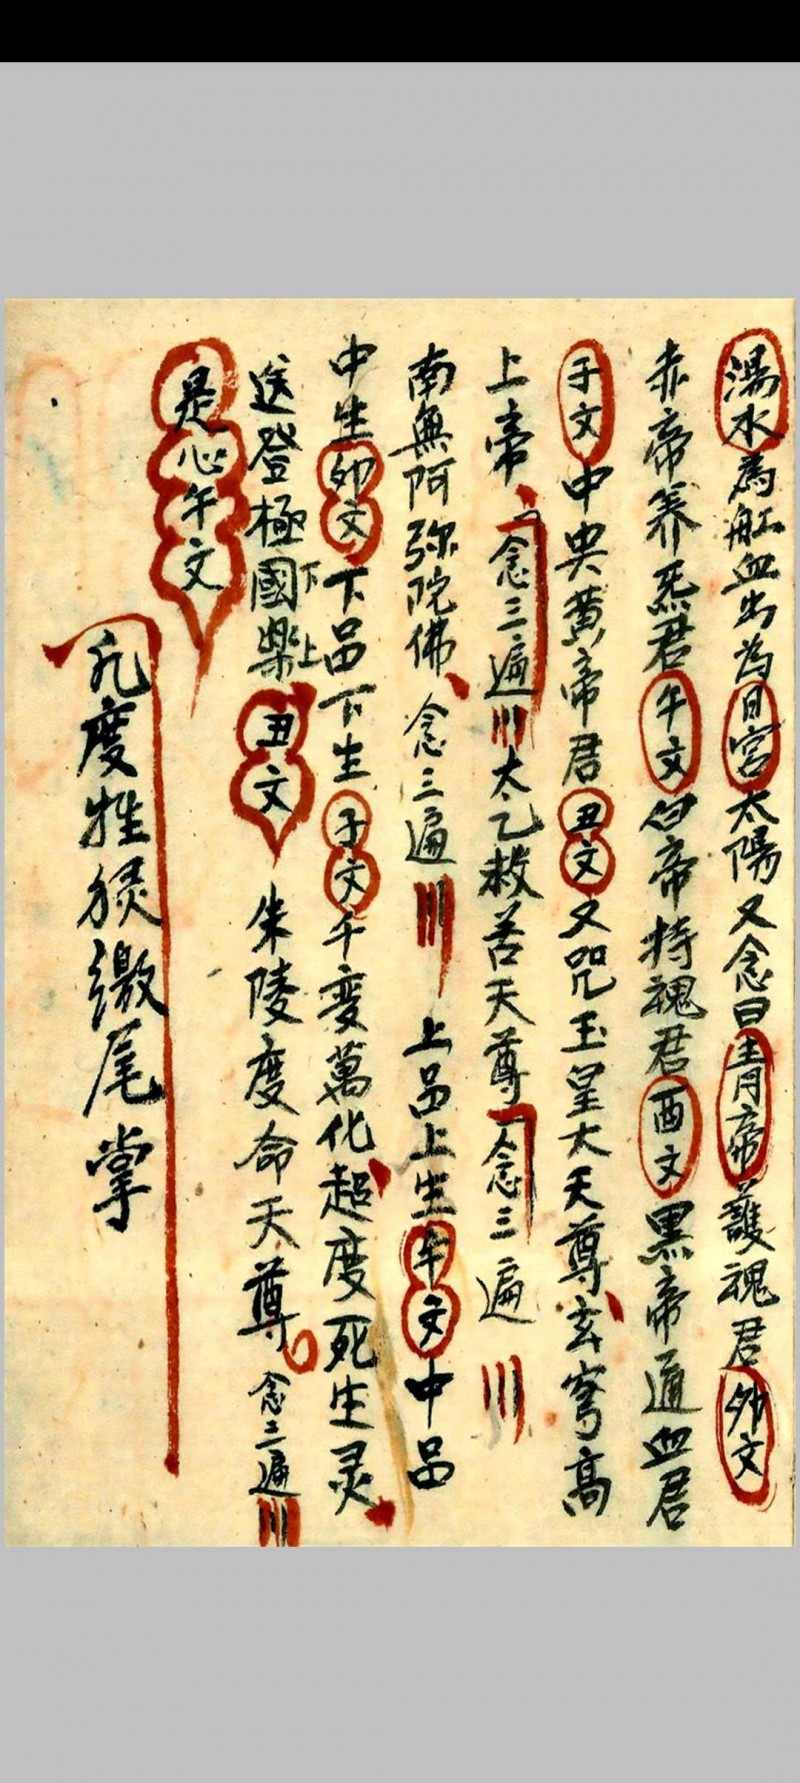 湯水為舡血出為日宮太陽又念曰青帝護魂君卯文
赤帝养炁君午文白帝持魂君酉文黑帝通血君
子文中央黄帝君丑文又咒玉皇大天尊玄穹高
上帝念三遍太乙救苦天尊念三遍
南無阿弥陀佛念三遍上品上生午文中品
中生卯文下品下生子文千变萬化超度死生灵
送登極國樂下上丑文朱陵度命天尊念三遍
是心午文
凢度牲繳尾掌